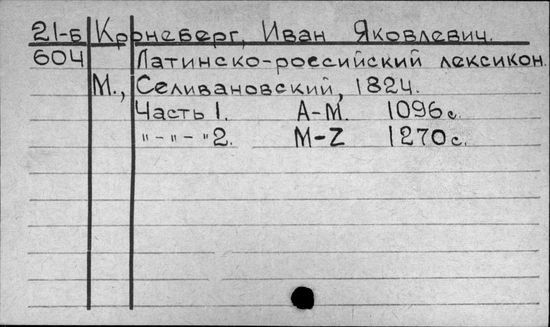 21-Б Кронеберг, Иван Яковлевич.
604 Латинско-российский лексикон.
М., Селивановский, 1824.
Часть 1. А-М. 1096 с.
"-"-"2. M-Z 1270 с.